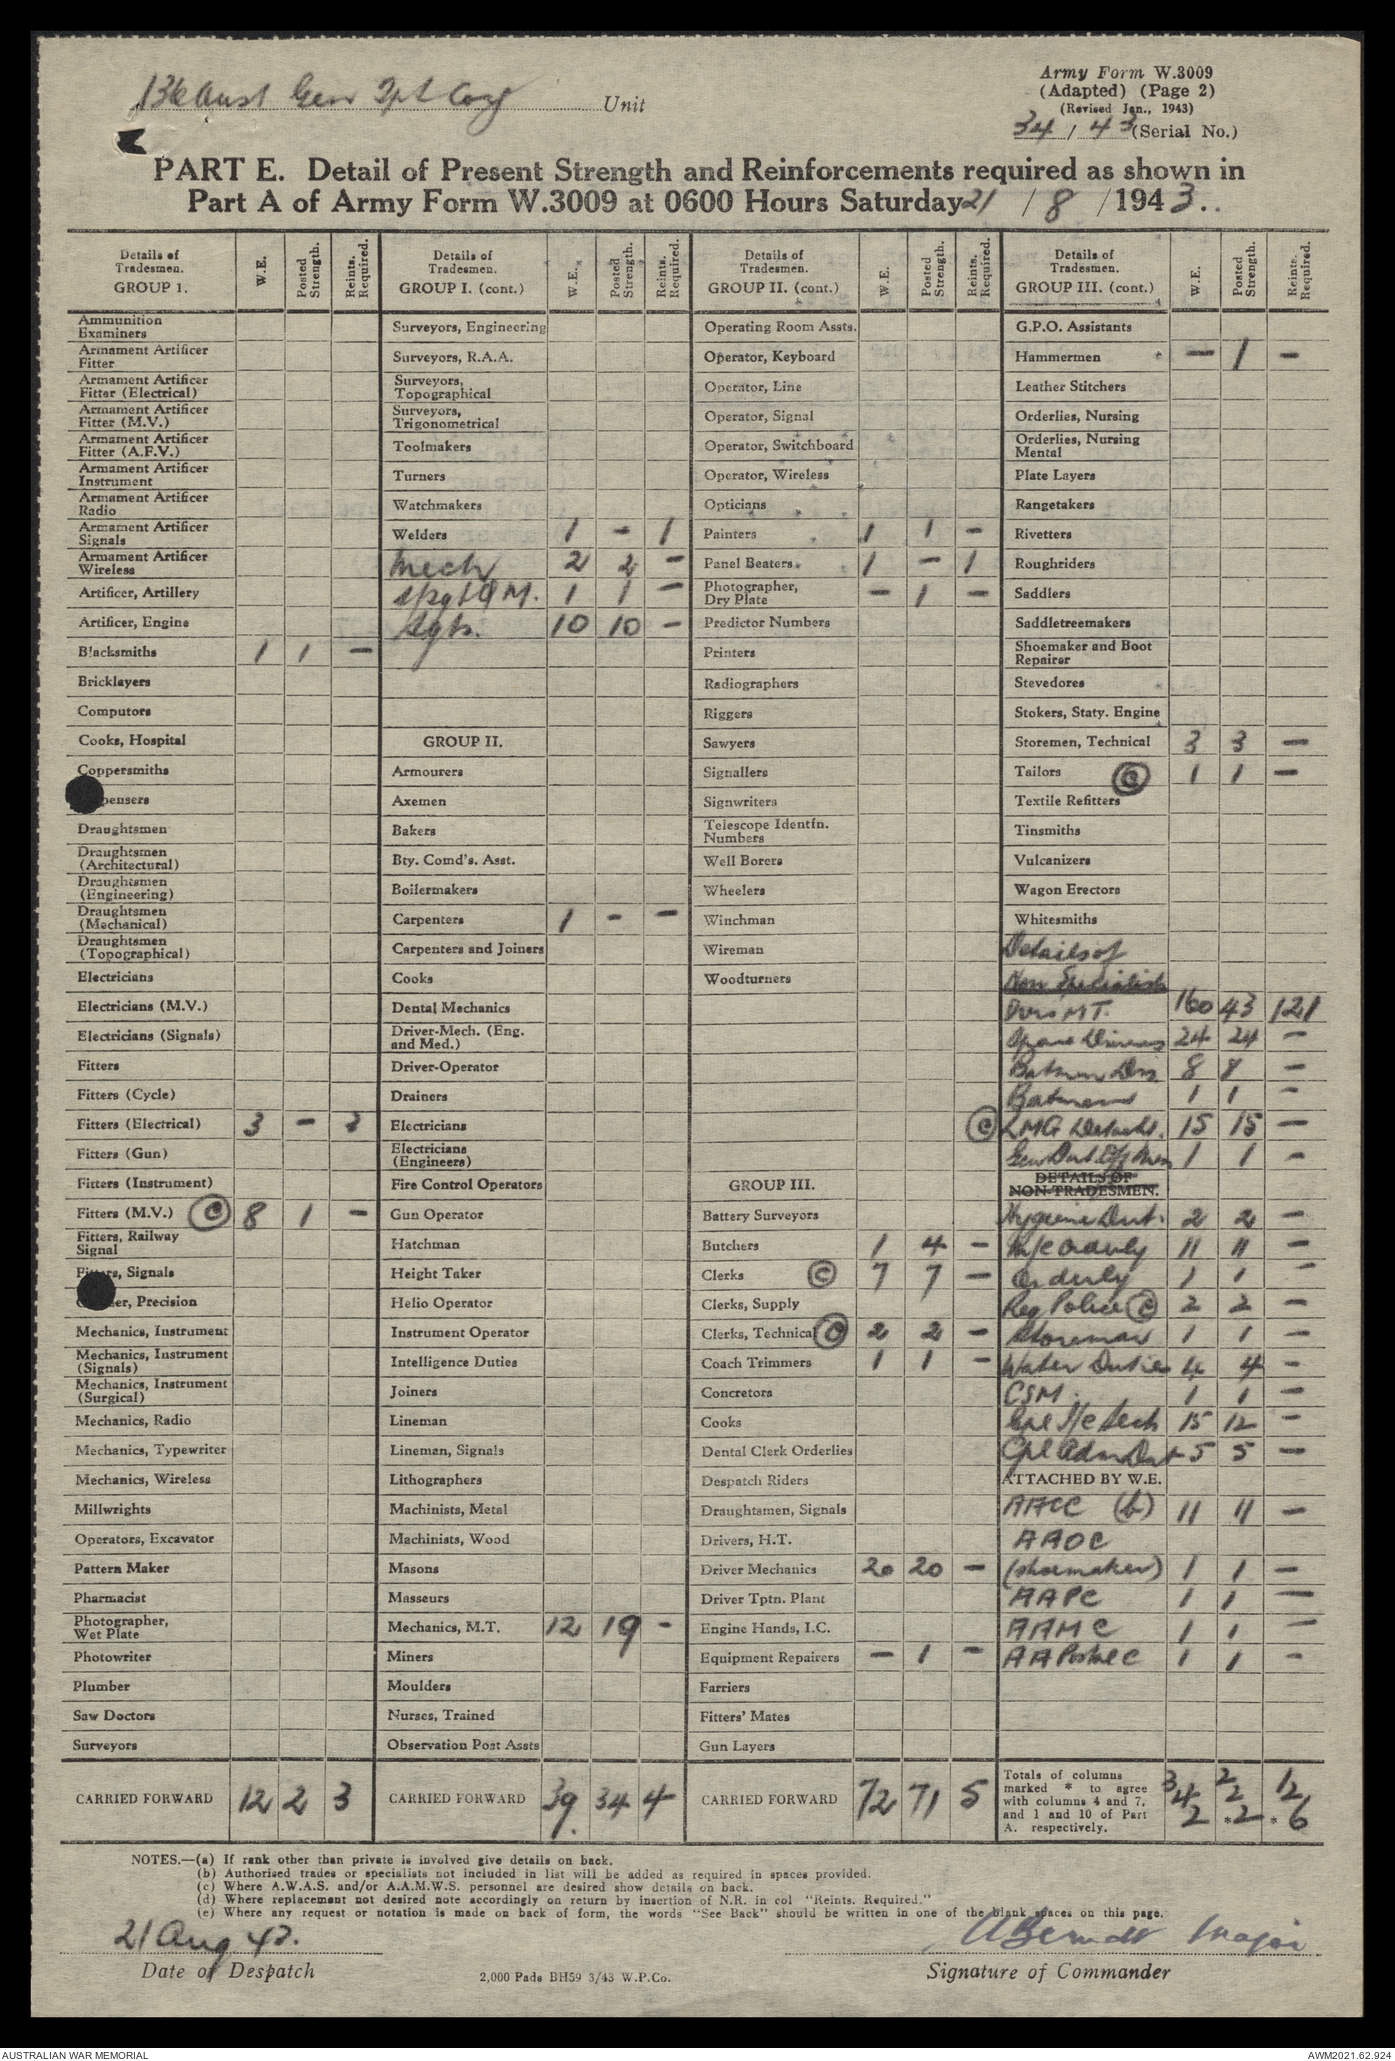 136 Aust Gen Tpt Coy Unit
Army Form W.3009
(Adapted) (Page 2)
(Revised Jan., 1943)
34 / 43 (Serial No.)
PART E. Detail of Present Strength and Reinforcements required as shown in
Part A of Army Form W.3009 at 0600 Hours Saturday 21 / 8 / 1943..
Details of Tradesmen. GROUP 1. W.E. Posted Strength. Reints. Required.
Ammunition Examiners
Armament Artificer Fitter
Armament Artificer Fitter (Electrical)
Armament Artificer Fitter (M.V.)
Armament Artificer Fitter (A.F.V.)
Armament Artificer Instrument
Armament Artificer Radio
Armament Artificer Signals
Armament Artificer Wireless
Artificer, Artillery
Artificer, Engine
Blacksmiths 1 1 -
Bricklayers
Computors
Cooks, Hospital
Coppersmiths
pensers
Draughtsmen
Draughtsmen (Architectural)
Draughtsmen (Engineering)
Draughtsmen (Mechanical)
Draughtsmen (Topographical)
Electricians
Electricians (M.V.)
Electricians (Signals)
Fitters
Fitters (Cycle)
Fitters (Electrical) 3 - 3
Fitters (Gun)
Fitters (Instrument)
Fitters (M.V.) (c) 8 1 -
Fitters, Railway Signal
Fitters, Signals
er, Precision
Mechanics, Instrument
Mechanics, Instrument (Signals)
Mechanics, Instrument (Surgical)
Mechanics, Radio
Mechanics, Typewriter
Mechanics, Wireless
Millwrights
Operators, Excavator
Pattern Maker
Pharmacist
Photographer, Wet Plate
Photowriter
Plumber
Saw Doctors
Surveyors
CARRIED FORWARD 12 2 3
Details of Tradesmen. GROUP I. (cont.) W.E. Posted Strength. Reints. Required.
Surveyors, Engineering
Surveyors, R.A.A.
Surveyors, Topographical
Surveyors, Trigonometrical
Toolmakers
Turners
Watchmakers
Welders 1 - 1
Mech 2 2 -
1 1 -
Sgts. 10 10 -
GROUP II.
Armourers
Axemen
Bakers
Bty. Comd's. Asst.
Boilermakers
Carpenters 1 - -
Carpenters and Joiners
Cooks
Dental Mechanics
Driver-Mech. (Eng. and Med.)
Driver-Operator
Drainers
Electricians
Electricians (Engineers)
Fire Control Operators
Gun Operator
Hatchman
Height Taker
Helio Operator
Instrument Operator
Intelligence Duties
Joiners
Lineman
Lineman, Signals
Lithographers
Machinists, Metal
Machinists, Wood
Masons
Masseurs
Mechanics, M.T. 12 19 -
Miners
Moulders
Nurses, Trained
Observation Post Assts
CARRIED FORWARD 39. 34 4
Details of Tradesmen. GROUP II. (cont.) W.E. Posted Strength. Reints. Required.
Operating Room Assts.
Operator, Keyboard
Operator, Line
Operator, Signal
Operator, Switchboard
Operator, Wireless
Opticians
Painters 1 1 -
Panel Beaters 1 - 1
Photographer, Dry Plate - 1 -
Predictor Numbers
Printers
Radiographers
Riggers
Sawyers
Signallers
Signwriters
Telescope Identfn. Numbers
Well Borers
Wheelers
Winchman
Wireman
Woodturners
GROUP III.
Battery Surveyors
Butchers 1 4 -
Clerks (c) 7 7 -
Clerks, Supply
Clerks, Technical (c) 2 2 -
Coach Trimmers 1 1 -
Concretors
Cooks
Dental Clerk Orderlies
Despatch Riders
Draughtsmen, Signals
Drivers, H.T.
Driver Mechanics 20 20 -
Driver Tptn. Plant
Engine Hands, I.C.
Equipment Repairers - 1 -
Farriers
Fitters' Mates
Gun Layers
CARRIED FORWARD 72 71 5
Details of Tradesmen. GROUP III. (cont.) W.E. Posted Strength. Reints. Required.
G.P.O. Assistants
Hammermen - 1 -
Leather Stitchers
Orderlies, Nursing
Orderlies, Nursing Mental
Plate Layers
Rangetakers
Rivetters
Roughriders
Saddlers
Saddletreemakers
Shoemaker and Boot Repairer
Stevedores
Stokers, Staty. Engine
Storemen, Technical 3 3 -
Tailors (c) 1 1 -
Textile Refitters
Tinsmiths
Vulcanizers
Wagon Erectors
Whitesmiths
Details of
Non Specialists
Dvrs M T. 160 43 121
Spare Drivers 24 24 -
Batmen Dvrs 8 8 -
Batmen 1 1 -
(c) LMG Detacht. 15 15 -
Gen Dut. 1 1 -
DETAILS OF NON-TRADESMEN.
Hygiene Dut. 2 2 -
M/c Orderly 11 11 -
Orderly 1 1 -
Reg Police (c) 2 2 -
Storeman 1 1 -
Water Duties 4 4 -
CSM. 1 1 -
Cpl I/c Sech 15 12 -
Cpl Adm Dut 5 5 -
ATTACHED BY W.E.
AACC (b) 11 11 -
AAOC
(shoemaker) 1 1 -
AAPC 1 1 -
AAMC 1 1 -
AAPostal C 1 1 -
Totals of columns marked * to agree with columns 4 and 7, and 1 and 10 of Part A. respectively. 342 *22 *126
NOTES.—(a) If rank other than private is involved give details on back.
(b) Authorised trades or specialists not included in list will be added as required in spaces provided.
(c) Where A.W.A.S. and/or A.A.M.W.S. personnel are desired show details on back.
(d) Where replacement not desired note accordingly on return by insertion of N.R. in col "Reints. Required."
(e) Where any request or notation is made on back of form, the words "See Back" should be written in one of the blank spaces on this page.
21 Aug 43.
Date of Despatch
2,000 Pads BH59 3/43 W.P.Co.
Major
Signature of Commander
AUSTRALIAN WAR MEMORIAL
AWM2021.62.924